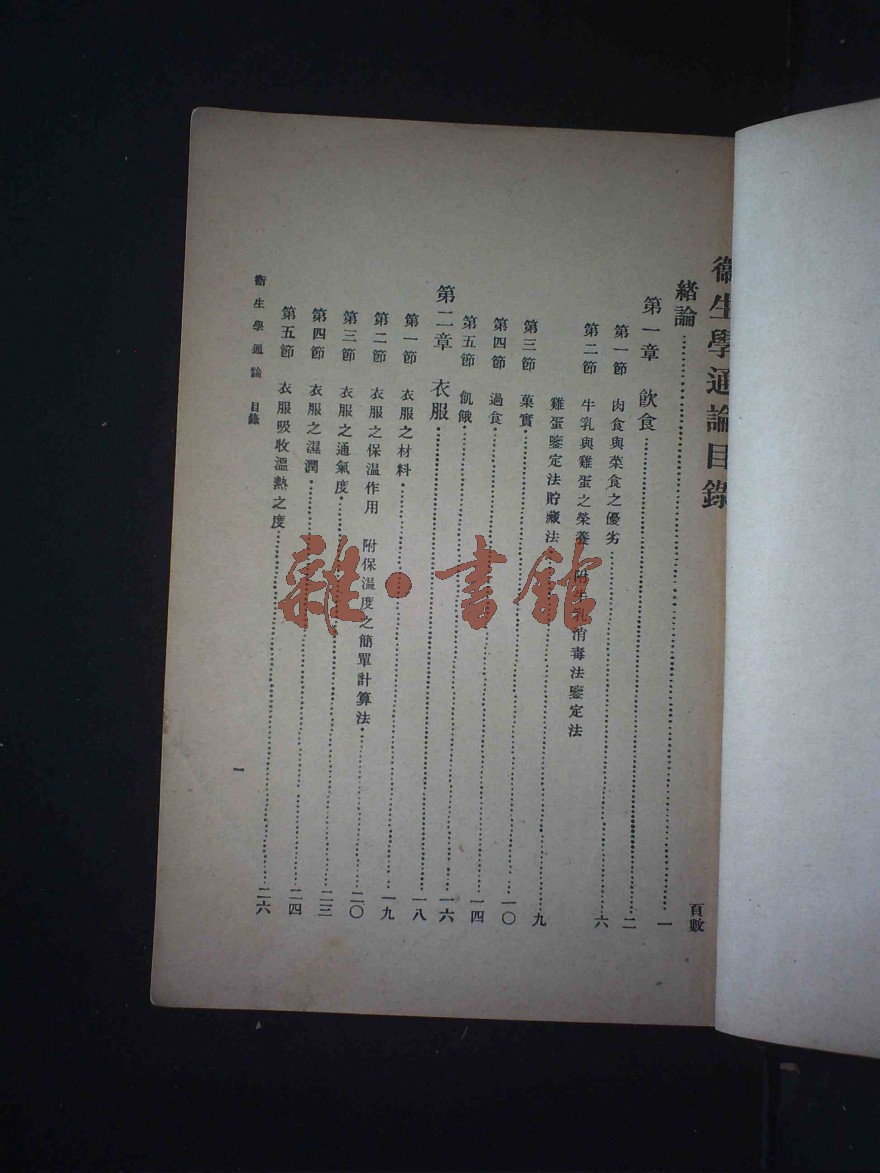 衞生學通論目錄
頁數
緒論……一
第一章 飲食……二
第一節 肉食與菜食之優劣……六
第二節 牛乳與雞蛋之榮養 附牛乳消毒法鑒定法
雞蛋鑒定法貯藏法……九
第三節 菓實……一〇
第四節 過食……一四
第五節 飢餓……一六
第二章 衣服……一八
第一節 衣服之材料……一九
第二節 衣服之保温作用 附保温度之簡單計算法……二〇
第三節 衣服之通氣度……二三
第四節 衣服之濕潤……二四
第五節 衣服吸收温熱之度……二六
衞生學通論 目錄
一
雜·書館